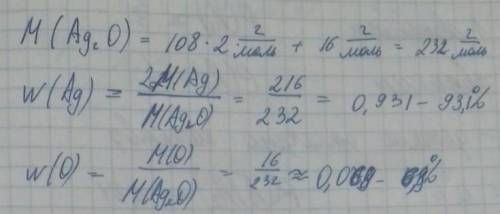 M(Ag₂O) = 108·2 г/моль + 16 г/моль = 232 г/моль
W(Ag) = 2M(Ag)/M(Ag₂O) = 216/232 = 0,931 – 93,1%
W(O) = M(O)/M(Ag₂O) = 16/232 ≈ 0,069 – 6,9%